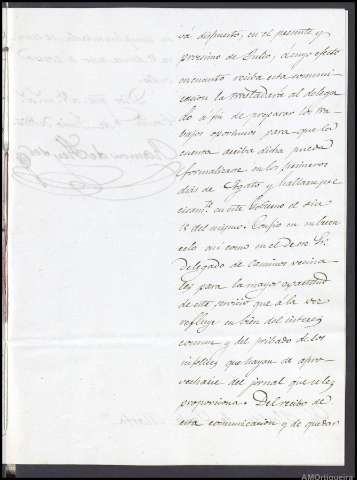 vá dispuesto, en el presente y
procsimo de Julio, á cuyo efecto
en cuanto reciba esta comuni-
cacion la trasladará al delega-
do á fin de preparar los tra-
bajos oportunos para que la
cuenta arriba dicha pueda
formalizarse en los primeros
dias de Agosto y hallarse
en este Gobierno el dia
del mismo. Confio en su buen
celo asi como en el de ese Sr.
delegado de Caminos vecina-
les para la mayor
de este servicio que á la vez
refluye en bien del interes
comun y del pribado de los
infelices que hayan de apro-
vecharse del jornal que se les
proporciona. Del recibo de
esta comunicacion y de quedar
AMOrtigueira